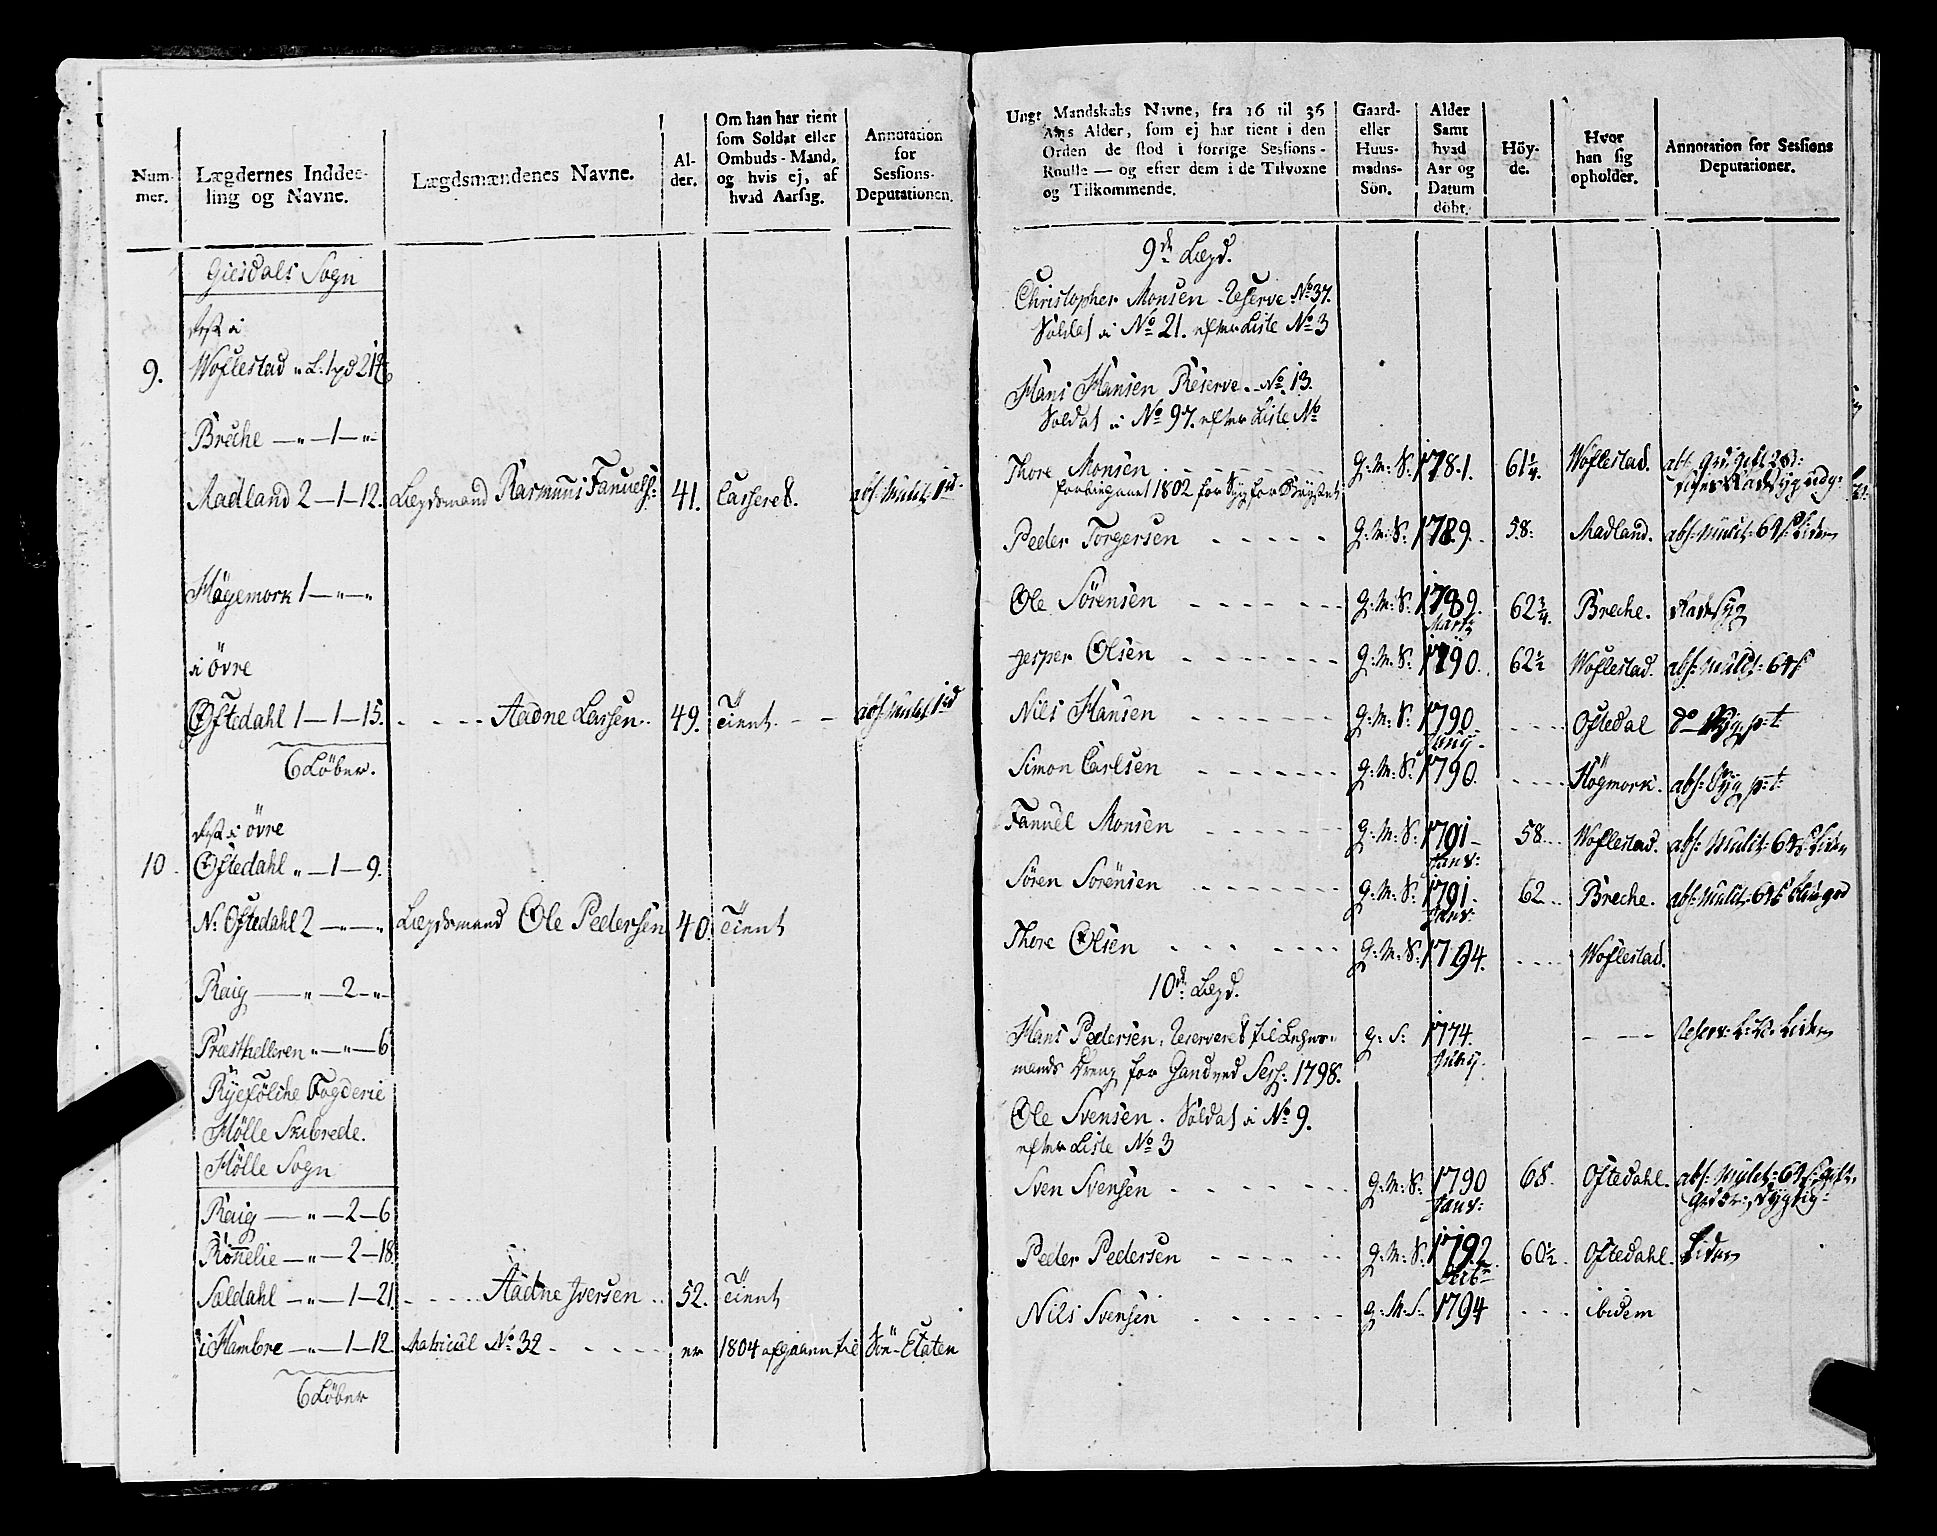 Num-
mer.
Lægdernes Inddee-
ling og Navne.
Lægdsmændenes Navne.
Al-
der.
Om han har tient
som Soldat eller
Ombuds-Mand,
og hvis ej, af
hvad Aarsag.
Annotation
for
Sessions-
Deputationen.
Giesdals Sogn
Rest i
9. Woflestad „ L: 1 pd 21
Breche — „ — 1 — „
Madland 2 — 1 — 12. Lægdsmand Rasmus Fanuels: 41. Casseret. abs: Mulct 1 rd
Høgemork 1 — „ — „
i övre
Oftedahl 1 — 1 — 15. - - - - Aadne Larsen 49. Tient - - abs: Mulct 1 rd
6 Löber.
Rest i övre
10. Oftedahl „ — 1 — 9.
N: Oftedahl 2 — „ — „ Lægdsmand Ole Pedersen 40. Tient
Raig — „ — 2 — „
Præsthelleren „ — „ — 6
Ryefölche Fogderie
Hölle Skibrede.
Hölle Sogn
Raig — „ — 2 — 6
Rönnelie — „ — 2 — 18.
Saldahl — „ — 1 — 21. - - - - Aadne Iversen 52. Tient
i Hambre — „ — 1 — 12 Matricul No 32 - - - - er 1804 afgaaen til Söe-Etaten
6 Löber
Ungt Mandskabs Navne, fra 16 til 36
Aars Alder, som ej har tient i den
Orden de stod i forrige Sessions-
Roulle — og efter dem i de Tilvoxne
og Tilkommende.
Gaard-
eller
Huus-
madns-
Sön.
Alder
Samt
hvad
Aar og
Datum
döbt.
Höy-
de.
Hvor
han sig
opholder.
Annotation for Sessions
Deputationer.
9de Lægd.
Christopher Monsen Reserve No 37.
Soldat i No 21. efter Liste No 3
Hans Hansen Reserve. No 13.
Soldat i No 97. efter Liste No
Thore Monsen - - - - - G: M: S: 1781. 61 1/4. Woflestad.
forbigaaet 1802 for Syg for Brystet
Peder Torgersen - - - - - G: M: S: 1789. 58. Madland. abs: Mulct: 64 s: Liden
Ole Sörensen - - - - - G: M: S: 1789. 62 3/4. Breche. Radesyg
Marty
Jesper Olsen - - - - - G: M: S: 1790. 62 1/2 Woflestad. abs: Mulct: 64 s
Nils Hansen - - - - - G: M: S: 1790 - - - - Oftedal do Syg p: t:
Juny
Simon Carlsen - - - - - G: M: S: 1790. - - - - Högmork. abs: Syg p: t:
Fanuel Monsen - - - - - G: M: S: 1791 58. Woflestad. abs: Mulct: 64 s Liden
Janv:
Sören Sörensen - - - - - G: M: S: 1791. 62. Breche. abs: Mulct: 64 s
Janv:
Thore Olsen - - - - - G: M: S: 1794. - - - - Woflestad.
10de Lægd.
Hans Pedersen, Reserveret til Lehns- G: S: 1774. - - - - Liden
July
mands Dreng for Gand ved Sess: 1798.
Ole Svensen. Soldat i No 9.
efter Liste No 3
Sven Svensen - - - - - G: M: S: 1790 68. Oftedahl. abs: Mulct: 64 s:
Janv:
Peder Pedersen - - - - - G: M: S: 1792 60 1/2. Oftedahl. Liden
Nils Svensen - - - - - G: M: S: 1794 - - - - ibidem